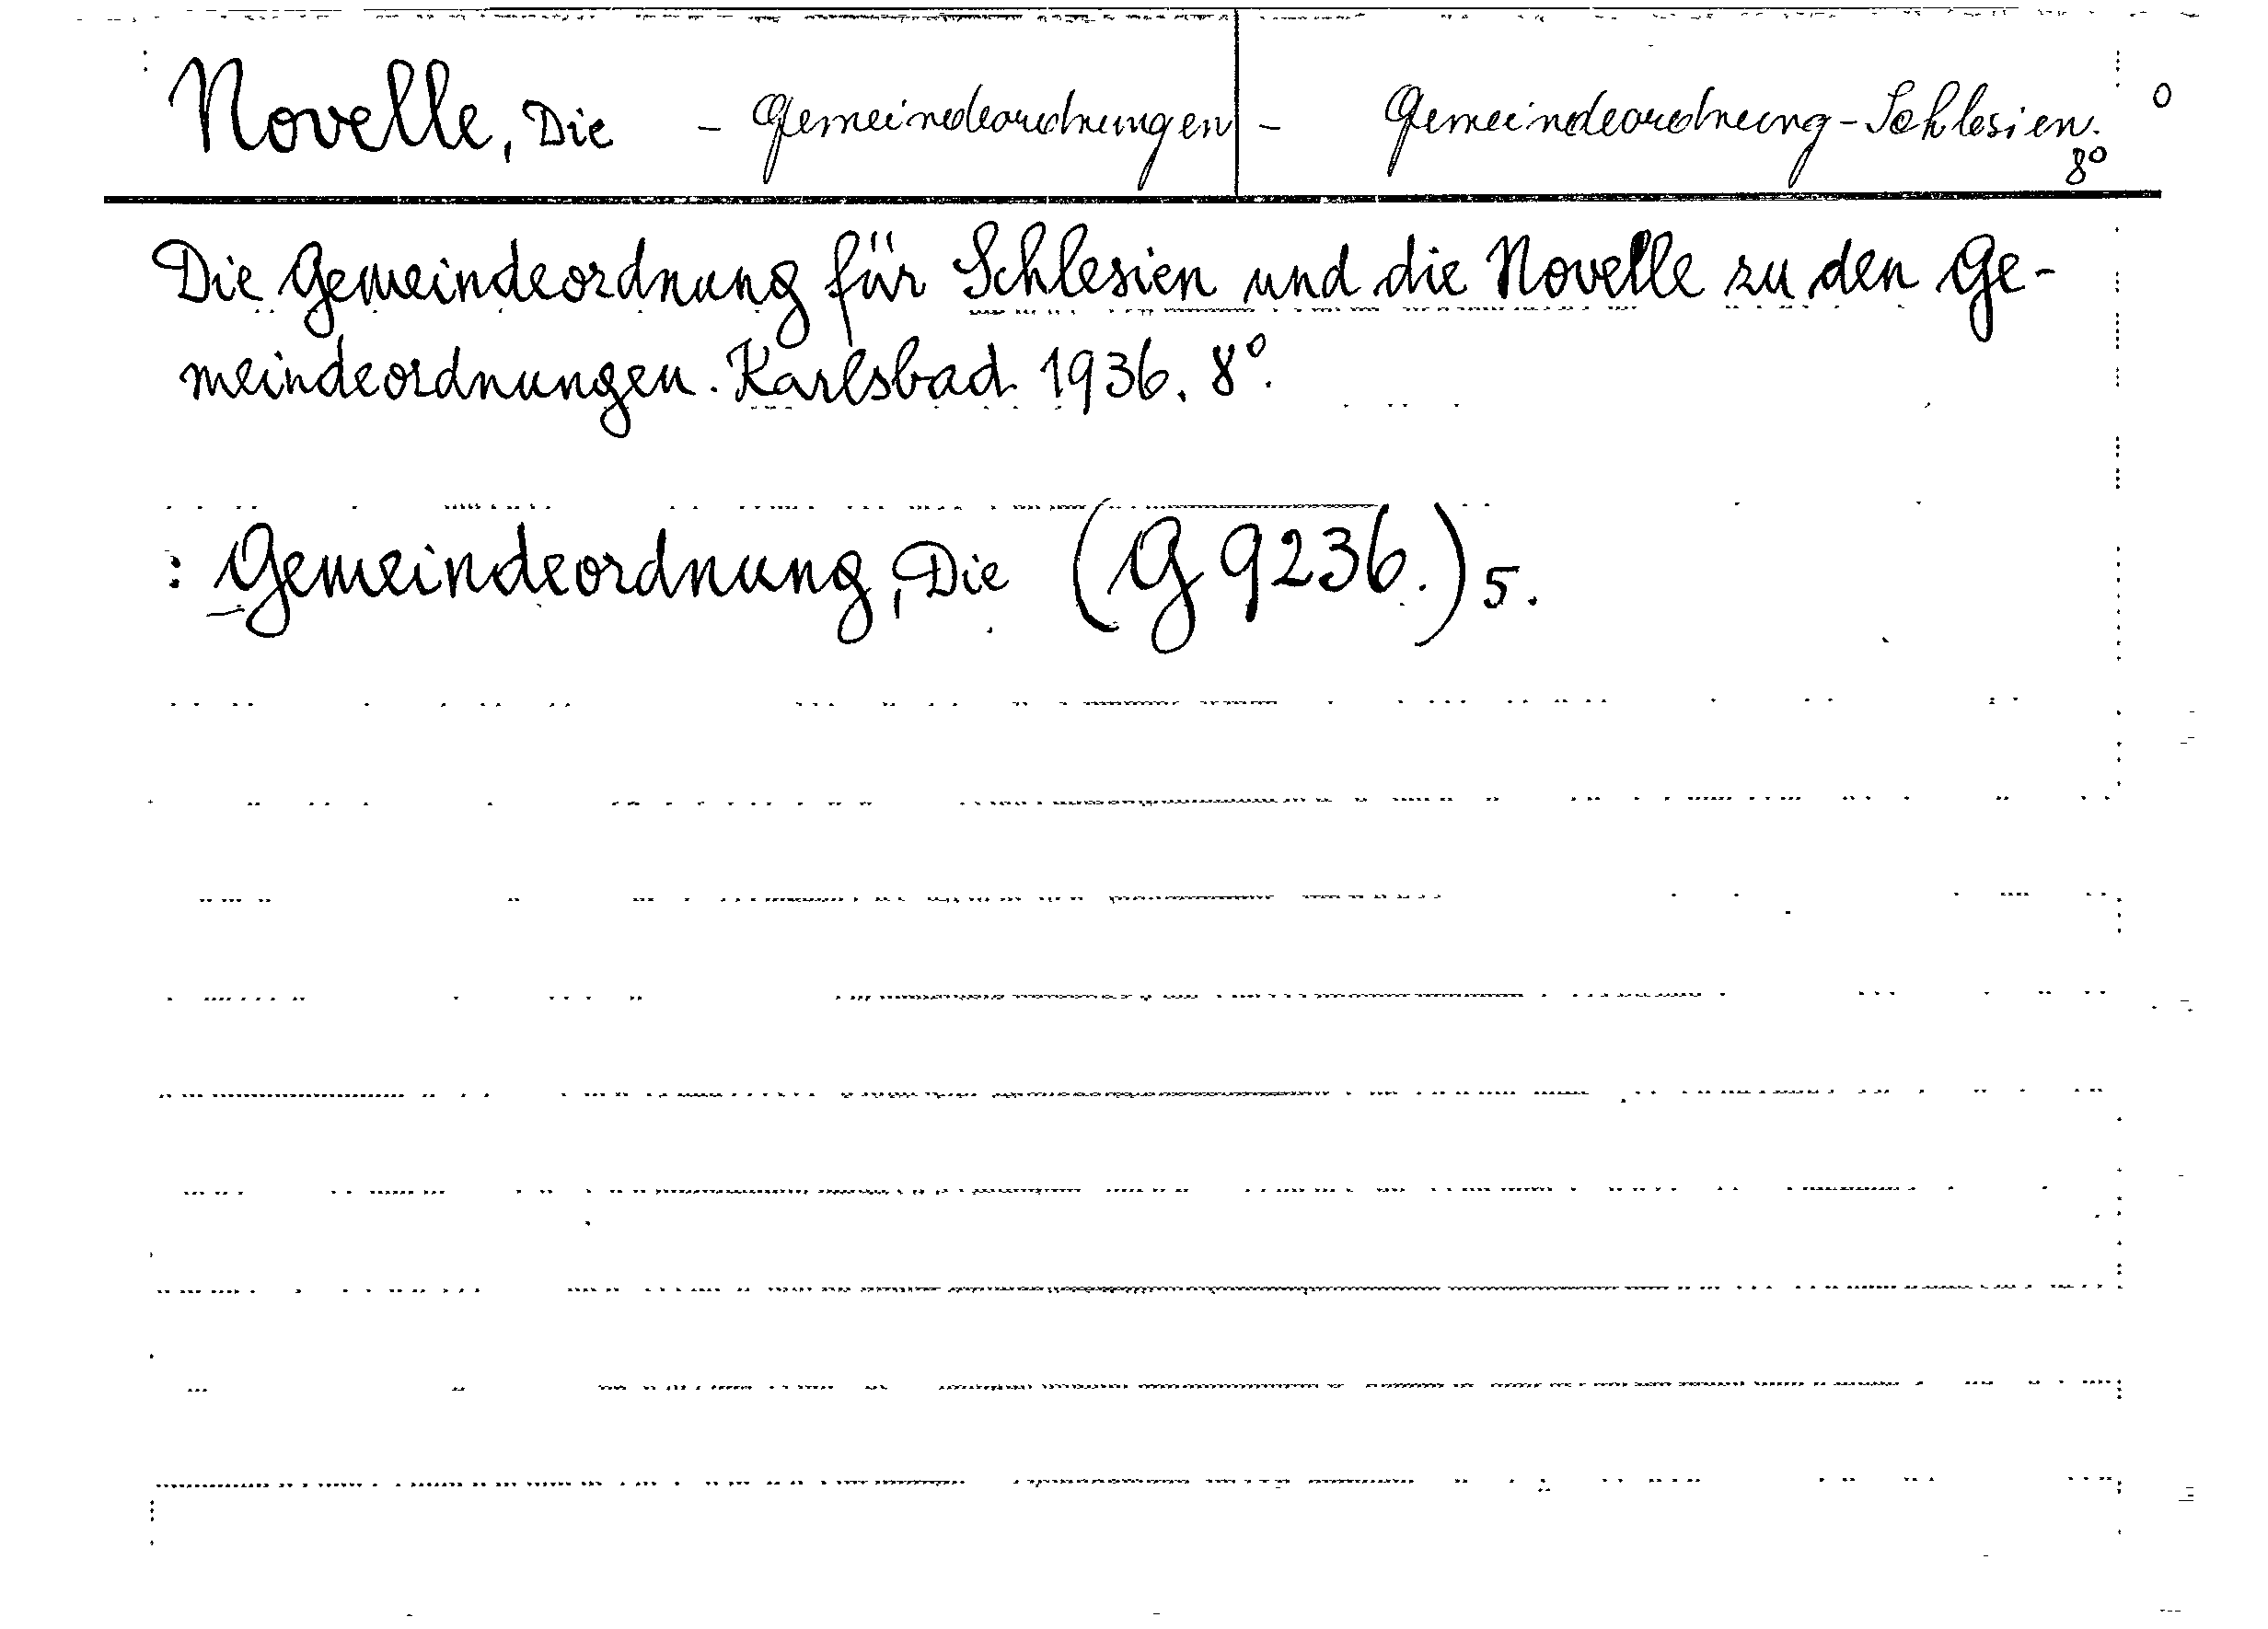 Novelle, Die - Gemeindeordnungen - Gemeindeordnung-Schlesien.
8°
Die Gemeindeordnung für Schlesien und die Novelle zu den Ge-
meindeordnungen. Karlsbad 1936. 8°.
: Gemeindeordnung, Die (G 9236.) 5.